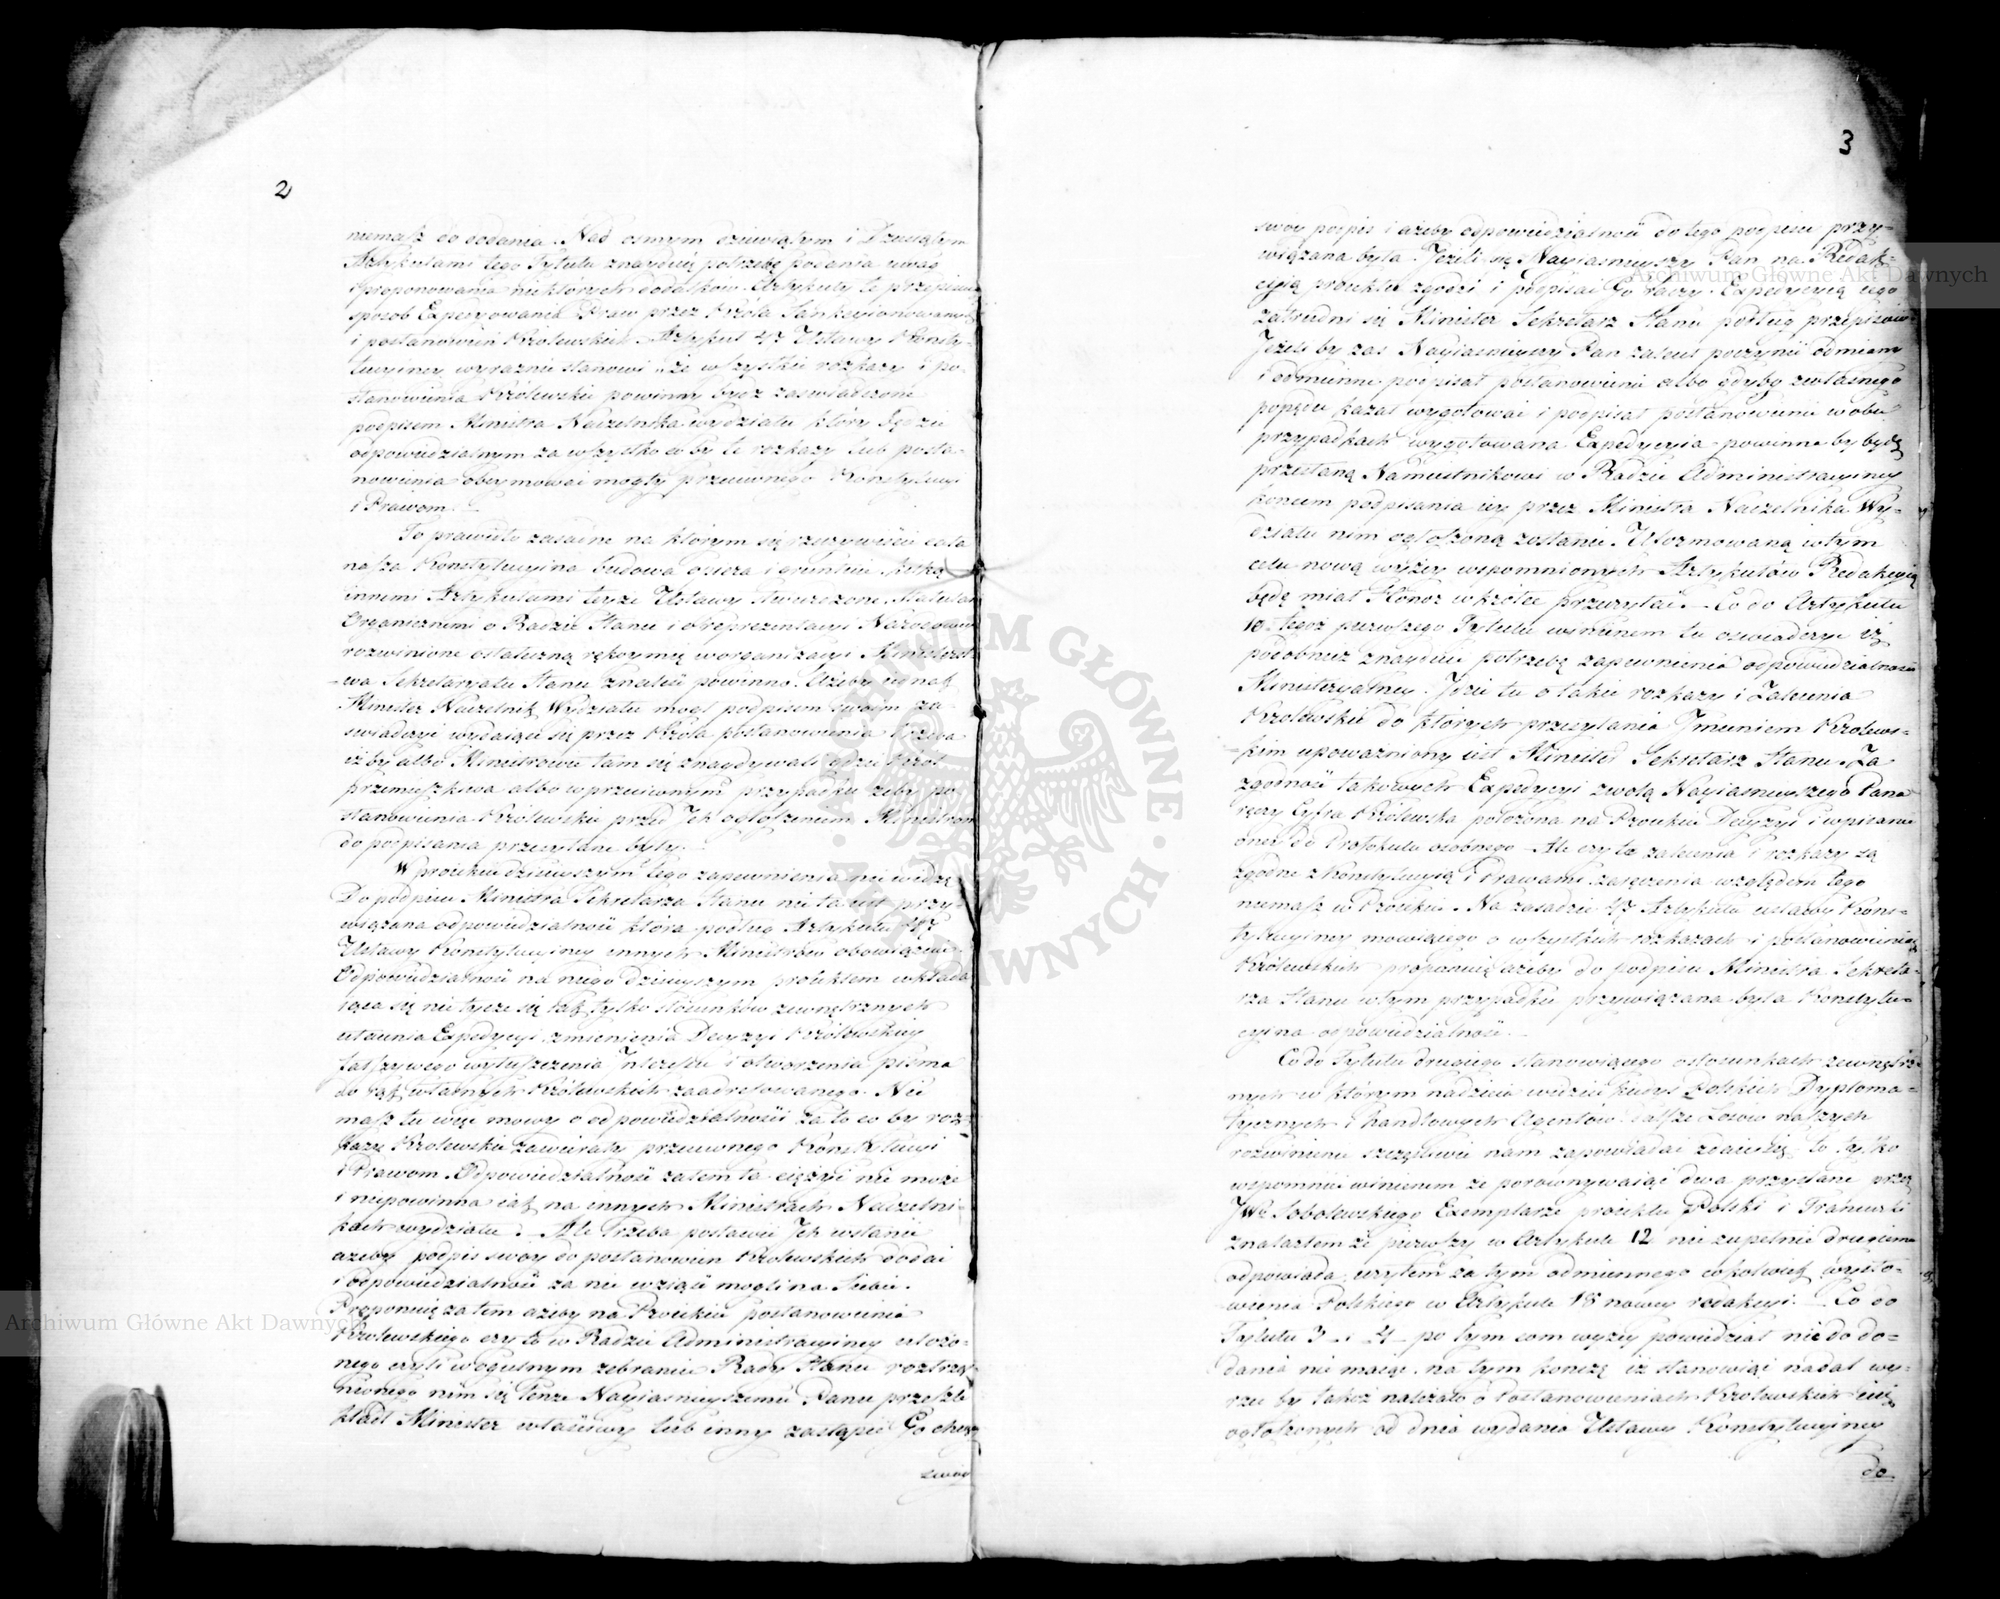 2
niemasz do dodania. Nad osmym dziewiątym i Dziesiątym
Artykułami tego Tytułu znayduię potrzebę podania uwag
i proponowania niektórych dodatków. Artykuły te przepisuią
sposob Expedyowania Praw przez Króla Sankcyonowanych
i postanowień Królewskich. Artykuł 47 Ustawy Konsty-
tucyiney wyraźnie stanowi, iż wszystkie rozkazy i po-
stanowienia Królewskie powinny bydź zaswiadczone
podpisem Ministra Naczelnika wydziału który będzie
odpowiedzialnym za wszystko coby te rozkazy lub posta-
nowienia obeymować mogły przeciwnego Konstytucyi
i Prawom.
To prawidło zasadne na którym się rzeczywiście cała
nasza Konstytucyina budowa opiera i
innemi Artykułami teyże Ustawy stwierdzone, Statutami
Organicznemi o Radzie Stanu i o Reprezentacyi Narodowey
rozwinione ostateczną rękoymię w organizacyi Ministerst-
wa Sekretaryatu Stanu znaleść powinno. Ażeby iednak
Minister Naczelnik Wydziału mogł podpisem swoim za-
swiadczyć wydaiące się przez Króla postanowienia trzeba
iżby albo Ministrowie tam się znaydywali gdzie Król
przemieszkiwa albo w przeciwnym przypadku żeby po-
stanowienia Królewskie przed Ich ogłoszeniem Ministrom
do podpisania przesyłane były.
W proiekcie dzisieyszym tego zapewnienia nie widzę
Do podpisu Ministra Sekretarza Stanu nie ta iest przy-
wiązana odpowiedzialność która podług Artykułu 47
Ustawy Konstytucyiney innych Ministrów obowiązuie.
Odpowiedzialność na niego dzisieyszym proiektem wkłada-
iąca się nie tycze się iak tylko stosunków zewnętrznych
utaienia Expedycyi zmienienia Decyzyi Królewskiey
fałszywego wytłuszczenia Interesu i otworzenia pisma
do rąk własnych Królewskich zaadresowanego. Nie
masz tu więc mowy o odpowiedzialności za to co by roz-
kazy Królewskie zawierały przeciwnego Konstytucyi
i Prawom. Odpowiedzialność zatem ta ciężyć nie może
i niepowinna iak na innych Ministrach Naczelni-
kach wydziału. Ale trzeba postawić Ich w stanie
ażeby podpis swoy do postanowień Królewskich dodać
i odpowiedzialność za nie wziąść mogli na Siebie.
Proponuię zatem ażeby na Proiekcie postanowienia
Królewskiego czy to w Radzie Administracyiney ułożo-
nego czyli w ogulnym zebraniu Rady Stanu roztrzą-
śnionego nim się tenże Nayiasnieyszemu Panu przeszle
kładł Minister właściwy lub inny zastąpić Go chcący
swoy
3
swoy podpis i ażeby odpowiedzialność do tego podpisu przy-
wiązana była. Jeżeli się Nayiasnieyszy Pan na Redak-
cyią proiektu zgodzi i podpisać Go raczy. Expedycyią iego
zatrudni się Minister Sekretarz Stanu podług przepisów.
Jeżeliby zaś Nayiasnieyszy Pan zalecił poczynić odmiany
i odmienne podpisał postanowienie albo gdyby z własnego
popędu kazał wygotować i podpisał postanowienie w obu
przypadkach wygotowana Expedycyia powinna by bydź
przesłaną Namiestnikowi w Radzie Administracyiney
końcem podpisania iey przez Ministra Naczelnika Wy-
działu nim ogłoszoną zostanie. Uformowaną w tym
celu nową wyżey wspomnionych Artykułów Redakcyią
będę miał Honor wkrótce przeczytać. Co do Artykułu
10. tegoż pierwszego Tytułu winienem tu oświadczyć iż
podobnież znayduię potrzebę zapewnienia odpowiedzialności
Ministeryalney. Idzie tu o takie rozkazy i Zalecenia
Królewskie do których przesyłania Imieniem Królews-
kim upoważniony iest Minister Sekretarz Stanu. Za
zgodność takowych Expedycyi z wolą Nayiasnieyszego Pana
ręczy Cyfra Królewska położona na Proiekcie Decyzyi i wpisanie
oney do Protokułu osobnego. Ale czy te zalecenia i rozkazy są
zgodne z Konstytucyią i Prawami zaręczenia względem tego
niemasz w Proiekcie. Na zasadzie 47 Artykułu ustawy Kons-
tytucyiney mowiącego o wszystkich rozkazach i postanowieniach
Królewskich proponuię ażeby do podpisu Ministra Sekreta-
rza Stanu w tym przypadku przywiązana była Konstytu-
cyina odpowiedzialność.
Co do Tytułu drugiego stanowiącego o stosunkach zewnętrz-
nych w którym nadzieia widzieć kiedyś Polskich Dyploma-
tycznych i handlowych Agentów dalsze Losów naszych
rozwinienie szczęśliwie nam zapowiadać zdaie się, to tylko
wspomnieć winienem że porównywaiąc dwa przysłane przez
JWo Sobolewskiego Exemplarze proiektu Polski i Francuzki
znalazłem że pierwszy w Artykule 12 nie zupełnie drugiemu
odpowiada, użyłem zatym odmiennego cokolwiek wysło-
wienia Polskiego w Artykule 18 nowey redakcyi. Co do
Tytułu 3 i 4 po tym com wyżey powiedział nic do do-
dania nie maiąc na tym kończę iż stanowiąc nadal wy-
rzec by także należało o Postanowieniach Królewskich iuż
ogłoszonych od dnia wydania Ustawy Konstytucyiney
do
Archiwum Główne Akt Dawnych
Archiwum Główne Akt Dawnych
ARCHIWUM GŁÓWNE AKT DAWNYCH